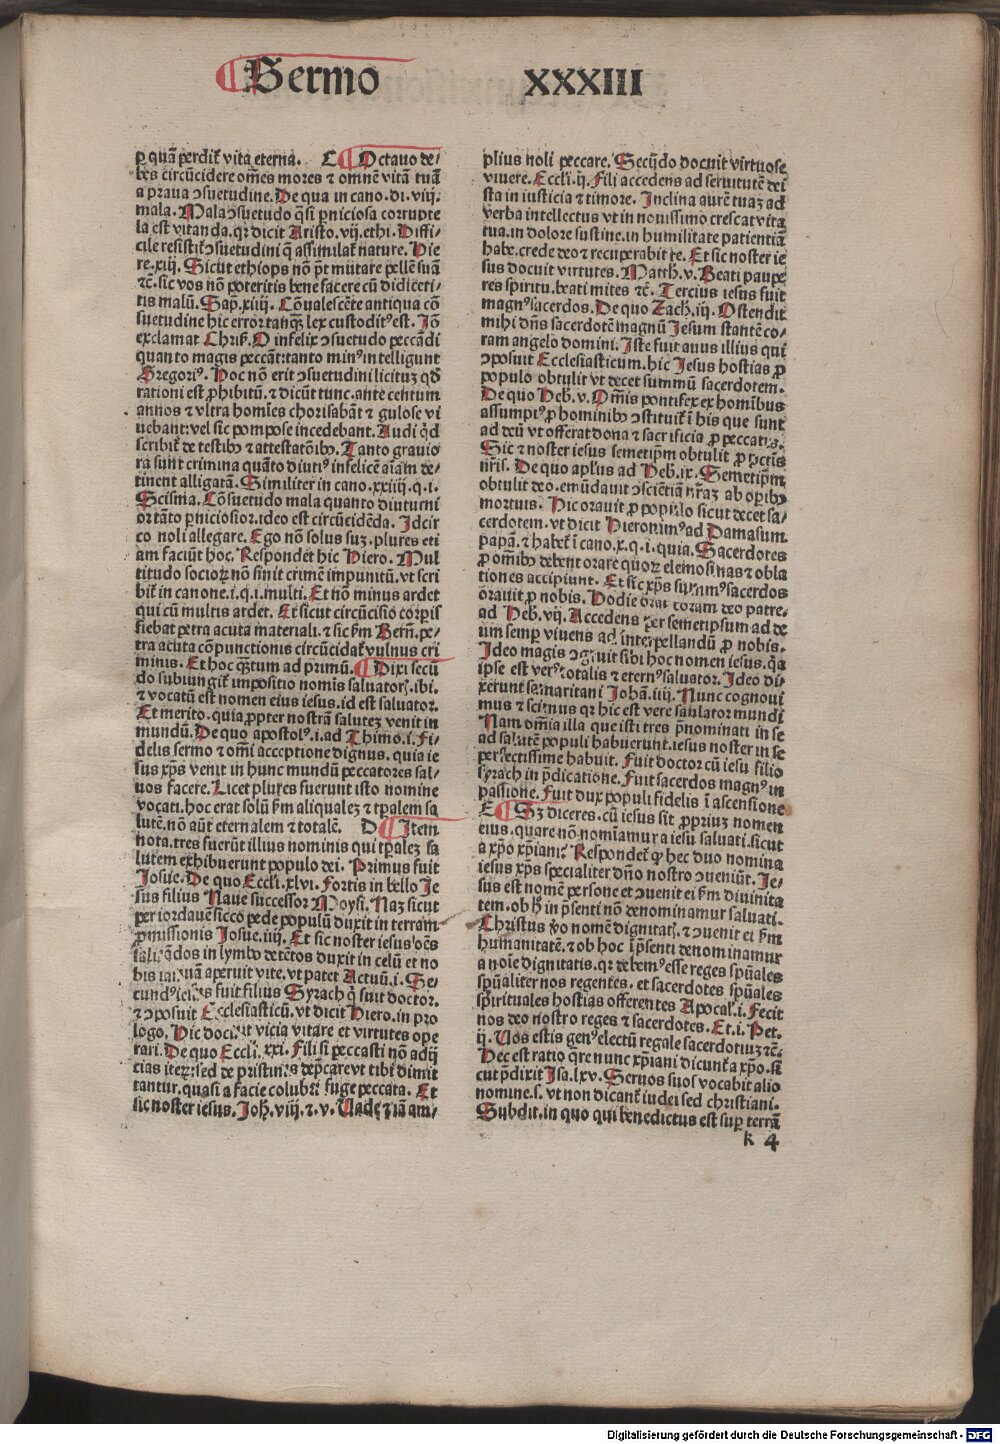 Sermo XXXIII
ꝑ quā perdit᷑ vita eterna. C Octauo de⸗
bes circūcidere om̄es mores ⁊ omnē vitā tuā
a praua ↄsuetudine. De qua in cano. di. viij.
mala. Mala ↄsuetudo q̄si p̄niciosa corrupte
la est vitanda. qꝛ dicit Aristo. vij. ethi. Diffi⸗
cile resistit᷑ ↄsuetudini q̄ assimilat᷑ nature. Hie
re. xiij. Sicut ethiops nō p̄t mutare pellē suā
⁊c̄. sic vos nō poteritis bene facere cū didiceri⸗
tis malū. Sap̄. xiiij. Cōualescēte antiqua cō
suetudine hic error tanq̄ꝫ lex custodit᷒ est. Jō
exclamat Chris̄. O infelix ↄsuetudo peccādi
quanto magis peccāt: tanto min᷒ intelligunt
Gregori᷒. Hoc nō erit ↄsuetudini licituꝫ qd̄
rationi est ꝓhibitū. ⁊ dicūt tunc. ante centum
annos ⁊ vltra homīes chorisabāt ⁊ gulose vi
uebant: vel sic pompose incedebant. Audi qd̄
scribit᷑ de testibꝰ ⁊ attestatōibꝰ. Tanto grauio
ra sunt crimina quāto diuti᷒ infelicē aīam de⸗
tinent alligatā. Similiter in cano. xxiiij. q. i.
Scisma. Cōsuetudo mala quanto diuturni
or tāto ꝑniciosior. ideo est circūcidēda. Jdcir
co noli allegare. Ego nō solus suꝫ. plures eti
am faciūt hoc. Respondet hic Hiero. Mul
titudo socioꝝ nō sinit crimē impunitū. vt scri
bit᷑ in canone. i. q. i. multi. Et nō minus ardet
qui cū multis ardet. Et sicut circūcisio corꝑis
fiebat petra acuta materiali. ⁊ sic ẜm Bern̄. pe⸗
tra acuta cōpunctionis circūcidat᷑ vulnus cri
minis. Et hoc q̄ꝫtum ad primū. Dixi secū
do subiungit᷑ impositio nomīs saluatoꝝ. ibi.
⁊ vocatū est nomen eius iesus. id est saluator.
Et merito. quia ꝓpter nostrā saluteꝫ venit in
mundū. De quo apostol᷒. i. ad Thimo. i. Fi⸗
delis sermo ⁊ om̄i acceptione dignus. quia ie
sus xp̄s venit in hunc mundū peccatores sal⸗
uos facere. Licet plures fuerunt isto nomine
vocati. hoc erat solū ẜm aliqualeꝫ ⁊ tp̄alem sa
lutē. nō aūt eternalem ⁊ totalē. D Item
nota. tres fuerūt illius nominis qui tp̄aleꝫ sa
lutem exhibuerunt populo dei. Primus fuit
Josue. De quo Eccli. xlvi. Fortis in bello Je
sus filius Naue successor Moysi. Naꝫ sicut
per iordanē sicco pede populū duxit in terram
ꝓmissionis Josue. iiij. Et sic noster iesus oēs
saluādos in lymbo detētos duxit in celū et no
bis ianuā aperuit vite. vt patet Actuū. i. Se⸗
cund᷒ iesus fuit filius Syrach q̇ fuit doctor.
⁊ ↄposuit Ecclesiasticū. vt dicit Hiero. in pro
logo. Hic docuit vicia vitare et virtutes ope
rari. De quo Eccli. xxi. Fili si peccasti nō adij
cias iteꝝ: sed de pristinis dep̄care vt tibi dimit
tantur. quasi a facie colubri fuge peccata. Et
sic noster iesus. Joh̄. viij. ⁊. v. Uade ⁊ iā am⸗
plius noli peccare. Secūdo docuit virtuose
viuere. Eccli. ij. Fili accedens ad seruitutē dei
sta in iusticia ⁊ timore. Jnclina aurē tuaꝫ ad
verba intellectus vt in nouissimo crescat vita
tua. in dolore sustine. in humilitate patientiā
habe. crede deo ⁊ recuperabit te. Et sic noster ie
sus docuit virtutes. Matth̄. v. Beati paupe
res spiritu. beati mites ⁊c̄. Tercius iesus fuit
magn᷒ sacerdos. De quo Zach̄. iij. Ostendit
mihi dn̄s sacerdotē magnū Jesum stantē co⸗
ram angelo domini. Jste fuit auus illius qui
ↄposuit Ecclesiasticum. hic Jesus hostias ꝓ
populo obtulit vt decet summū sacerdotem.
De quo Heb̄. v. Om̄is pontifex ex homībus
assumpt᷒ ꝓ hominibꝰ ↄstituit᷑ ī his que sunt
ad deū vt offerat dona ⁊ sacrificia ꝓ peccatis.
Sic ⁊ noster iesus semetip̄m obtulit ꝓ pctīs
nr̄is. De quo apl̄us ad Heb̄. ix. Semetip̄m
obtulit deo. emūdauit ↄsciētiā nr̄aꝫ ab oꝑibꝰ
mortuis. Hic orauit ꝓ populo sicut decet sa⸗
cerdotem. vt dicit Hieronim᷒ ad Damasum
papā. ⁊ habet᷑ ī cano. x. q. i. quia. Sacerdotes
ꝓ om̄ibꝰ debent orare quoꝝ elemosinas ⁊ obla
tiones accipiunt. Et sic xp̄s sum᷒ sacerdos
orauit ꝓ nobis. Hodie orat coram deo patre⸗
ad Heb̄. vij. Accedens per semetipsum ad de
um semꝑ viuens ad interpellandū ꝓ nobis.
Jdeo magis ↄgruit sibi hoc nomen iesus. q̄a
ipse est ver᷒ totalis ⁊ etern᷒ saluator. Jdeo di⸗
xerunt samaritani Johā. iiij. Nunc cognoui
mus ⁊ scimus qꝛ hic est vere saluator mundi
Nam om̄ia illa que isti tres p̄nominati in se
ad salutē populi habuerunt. iesus noster in se
perfectissime habuit. Fuit doctor cū iesu filio
syrach in p̄dicatione. Fuit sacerdos magn᷒ in
passione. Fuit dux populi fidelis ī ascensione
E Sꝫ diceres. cū iesus sit ꝓpriuꝫ nomen
eius. quare nō nomīamur a iesu saluati. sicut
a xp̄o xp̄iani? Respondet᷑ qꝙ hec duo nomina
iesus xp̄s specialiter dn̄o nostro ↄueniūt. Je⸗
sus est nomē persone et ↄuenit ei ẜm diuinita
tem. ob h̄ in p̄senti nō denominamur saluati.
Christus v̊o nomē dignitatꝭ. ⁊ ↄuenit ei ẜm
humanitatē. ⁊ ob hoc ī p̄senti denominamur
a noīe dignitatis. qꝛ debem᷒ esse reges spūales
spūaliter nos regentes. et sacerdotes spūales
spirituales hostias offerentes Apocal̄. i. Fecit
nos deo nostro reges ⁊ sacerdotes. Et. i. Pet.
ij. Uos estis gen᷒ electū regale sacerdotiuꝫ ⁊c̄.
Hec est ratio q̄re nunc xp̄iani dicunt᷑ a xp̄o. si
cut p̄dixit Jsa. lxv. Seruos suos vocabit alio
nomine. s. vt non dicant᷑ iudei sed christiani.
Subdit. in quo qui benedictus est suꝑ terrā
k 4
Digitalisierung gefördert durch die Deutsche Forschungsgemeinschaft - DFG